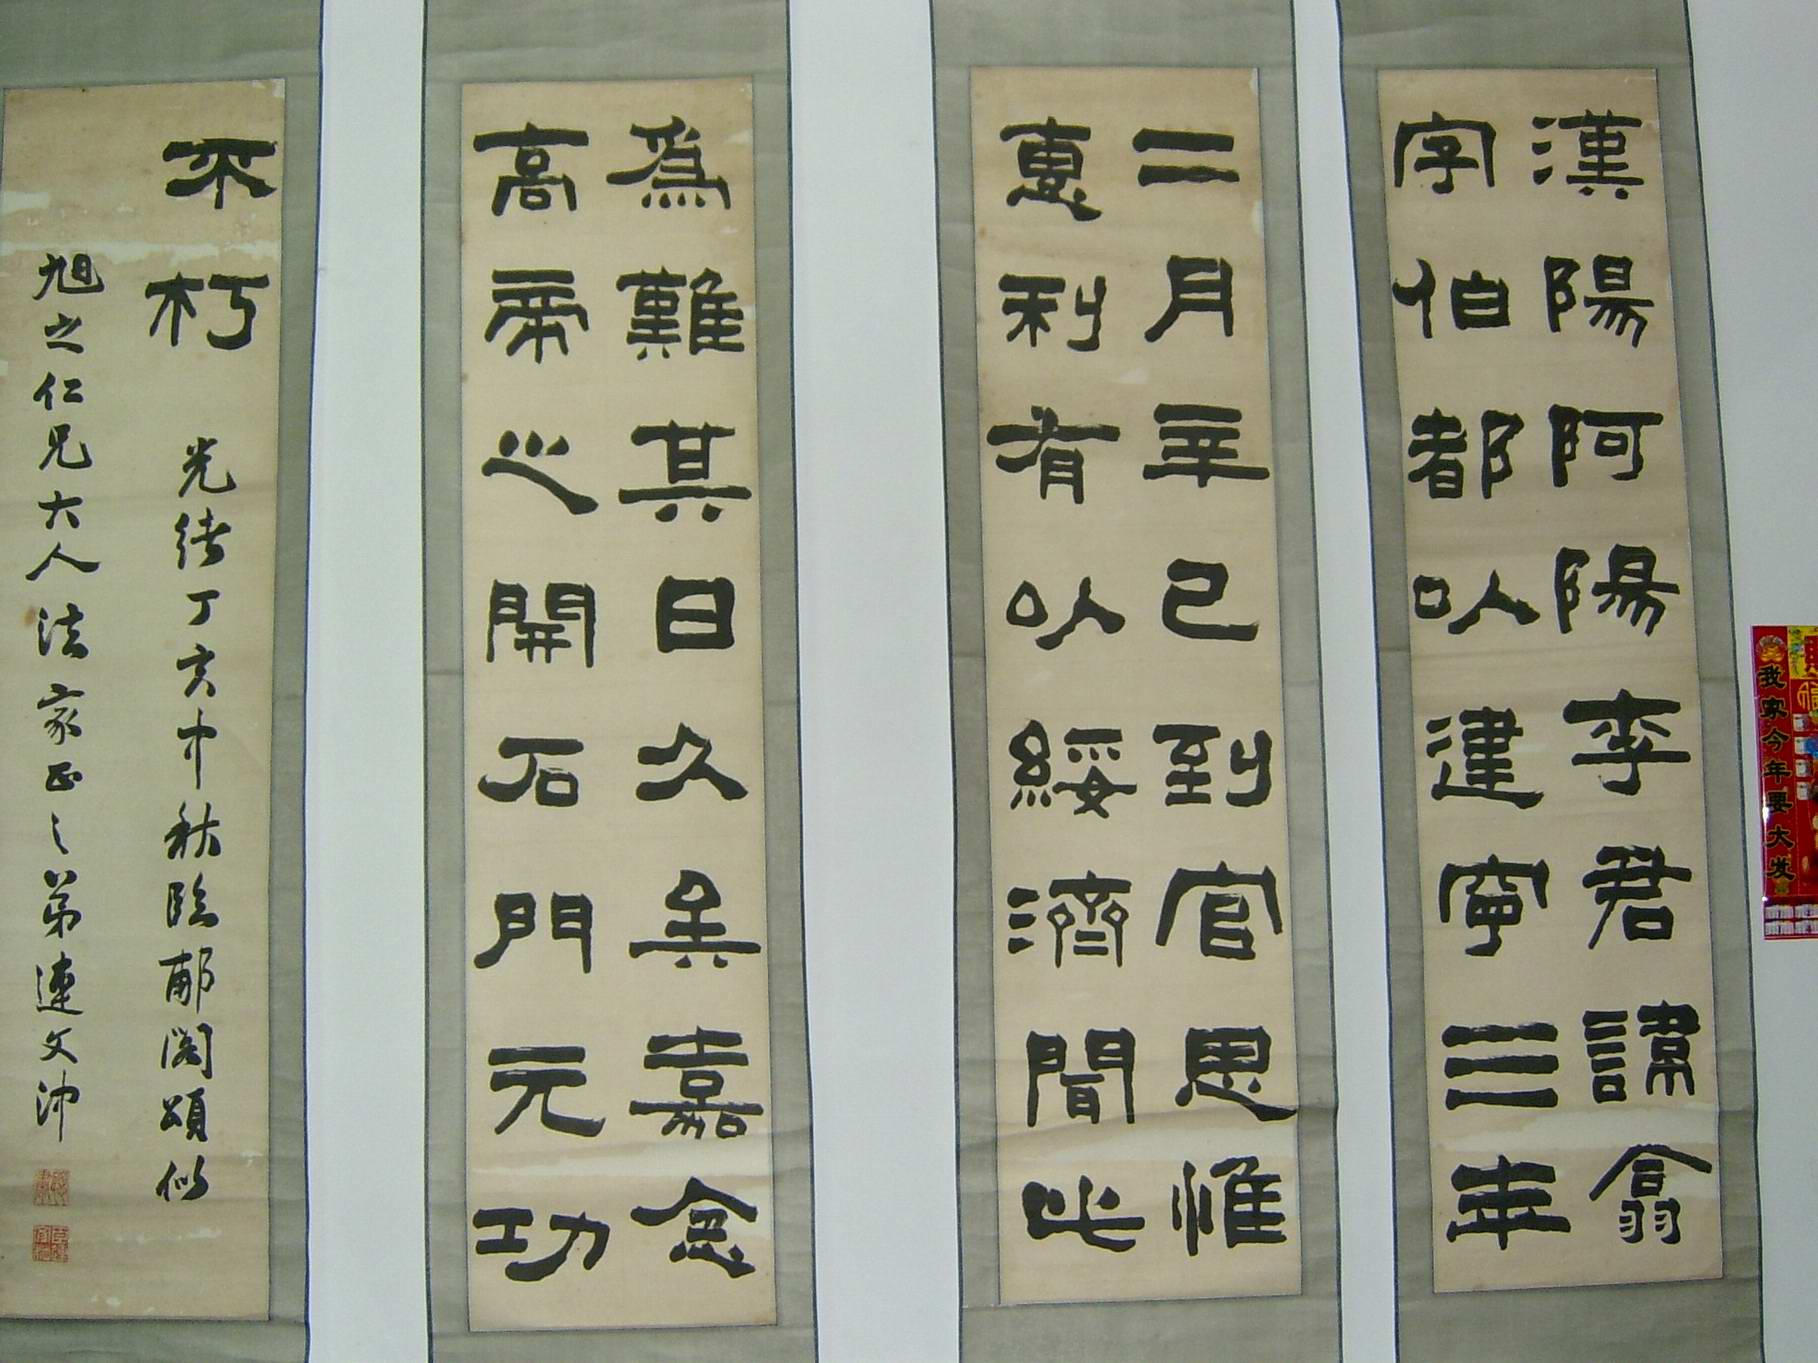 漢陽阿陽李君諱翕
字伯都以建寧三年
二月辛巳到官思惟
惠利有以綏濟聞此
為難其日久矣嘉念
高帝之開石門元功
不朽
光緒丁亥中秋臨郙閣頌似
旭之仁兄大人法家正之弟連文沖
我家今年要大发